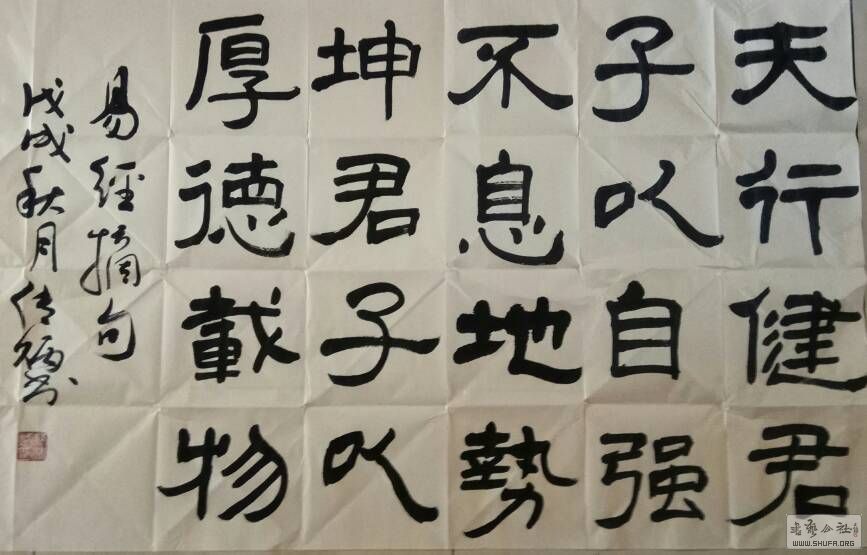 天行健君
子以自强
不息地勢
坤君子以
厚德載物
易經摘句
戊戌秋月
WWW.SHUFA.ORG